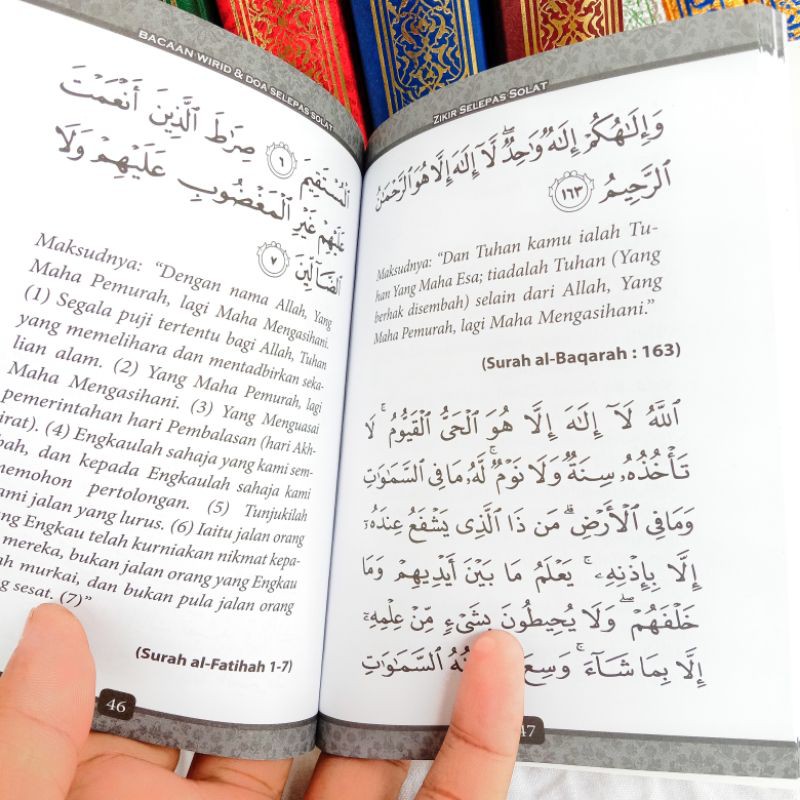 BACAAN WIRID & DOA SELEPAS SOLAT
ٱلْمُسْتَقِيمَ ٦ صِرَٰطَ ٱلَّذِينَ أَنْعَمْتَ
عَلَيْهِمْ غَيْرِ ٱلْمَغْضُوبِ عَلَيْهِمْ وَلَا
ٱلضَّآلِّينَ ٧
Maksudnya: “Dengan nama Allah, Yang
Maha Pemurah, lagi Maha Mengasihani.
(1) Segala puji tertentu bagi Allah, Tuhan
yang memelihara dan mentadbirkan seka-
lian alam. (2) Yang Maha Pemurah, lagi
Maha Mengasihani. (3) Yang Menguasai
pemerintahan hari Pembalasan (hari Akh-
irat). (4) Engkaulah sahaja yang kami sem-
bah, dan kepada Engkaulah sahaja kami
memohon pertolongan. (5) Tunjukilah
kami jalan yang lurus. (6) Iaitu jalan orang
yang Engkau telah kurniakan nikmat kepa-
mereka, bukan jalan orang yang Engkau
murkai, dan bukan pula jalan orang
sesat. (7)”
(Surah al-Fatihah 1-7)
46
ZIKIR SELEPAS SOLAT
وَإِلَٰهُكُمْ إِلَٰهٌ وَٰحِدٌ ۖ لَّآ إِلَٰهَ إِلَّا هُوَ ٱلرَّحْمَٰنُ
ٱلرَّحِيمُ ١٦٣
Maksudnya: “Dan Tuhan kamu ialah Tu-
han Yang Maha Esa; tiadalah Tuhan (Yang
berhak disembah) selain dari Allah, Yang
Maha Pemurah, lagi Maha Mengasihani.”
(Surah al-Baqarah : 163)
ٱللَّهُ لَآ إِلَٰهَ إِلَّا هُوَ ٱلْحَىُّ ٱلْقَيُّومُ ۚ لَا
تَأْخُذُهُۥ سِنَةٌ وَلَا نَوْمٌ ۚ لَّهُۥ مَا فِى ٱلسَّمَٰوَٰتِ
وَمَا فِى ٱلْأَرْضِ ۗ مَن ذَا ٱلَّذِى يَشْفَعُ عِندَهُۥٓ
إِلَّا بِإِذْنِهِۦ ۚ يَعْلَمُ مَا بَيْنَ أَيْدِيهِمْ وَمَا
خَلْفَهُمْ ۖ وَلَا يُحِيطُونَ بِشَىْءٍ مِّنْ عِلْمِهِۦٓ
إِلَّا بِمَا شَآءَ ۚ وَسِعَ ٱلسَّمَٰوَٰتِ
47